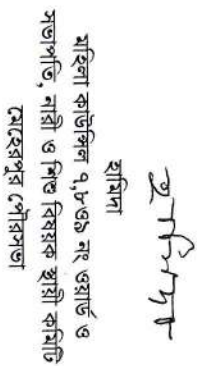 হামিদা
হামিদা
মহিলা কাউন্সিলর ৭,৮ও৯ নং ওয়ার্ড ও
সভাপতি, নারী ও শিশু বিষয়ক স্থায়ী কমিটি
মেহেরপুর পৌরসভা